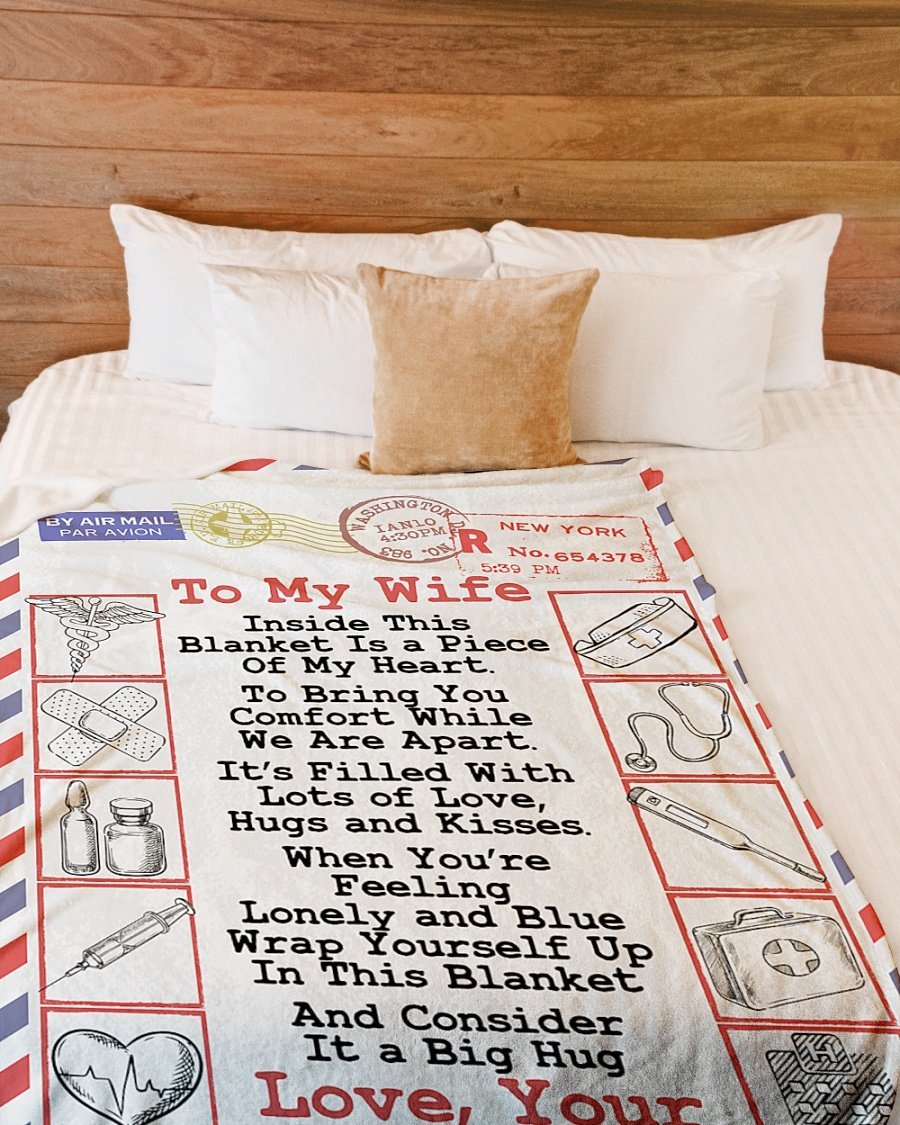 BY AIR MAIL
PAR AVION
WASHINGTON D.
JAN10
4:30PM
NO. 983
R
NEW YORK
No. 654378
5:39 PM
To My Wife
Inside This
Blanket Is a Piece
Of My Heart.
To Bring You
Comfort While
We Are Apart.
It's Filled With
Lots of Love,
Hugs and Kisses.
When You're
Feeling
Lonely and Blue
Wrap Yourself Up
In This Blanket
And Consider
It a Big Hug
Love, Your